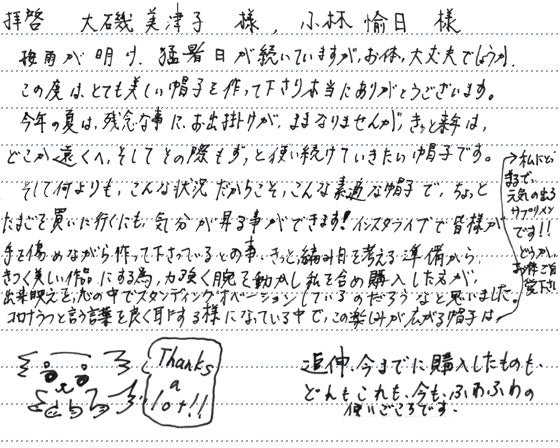 拝啓 大磯美津子 様, 小林 愉日 様
梅雨が明け、猛暑日が続いていますが、お体、大丈夫でしょうか.
この度は、とても美しい帽子を作って下さり本当にありがとうございます。
今年の夏は、残念な事に、お出掛けが、ままなりませんが、きっと来年は、
どこか遠くへ、そしてその際もずっと使い続けていきたい帽子です。
そして何よりも、こんな状況だからこそ、こんな素適な帽子で、ちょっと
たまごを買いに行くにも、気分が昇る事ができます!インスタライブで皆様が
手を傷めながら作って下さっているとの事、きっと編み目を考える準備から、
きつく美しい作品にする為、力強く腕を動かし私を含め購入した方が、
出来映えを、心の中でスタンディングオベーションしているのだろうなと思いました。
コロナうつと言う言葉を良く耳にする様になっている中で、この楽しみが広がる帽子は、
→私にとって
まるで、
元気の出る
サプリメント
です!!
どうか、
お体ご自
愛下さい
Thanks
a
lot!!
追伸、今までに購入したものも、
どれもこれも、今も、ふわふわの
使いごこちです.